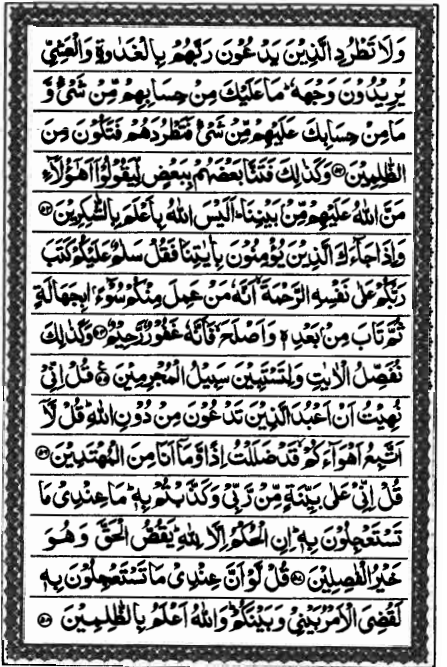 وَلَا تَطْرُدِ الَّذِيْنَ يَدْعُوْنَ رَبَّهُمْ بِالْغَدٰوةِ وَالْعَشِيِّ
يُرِيْدُوْنَ وَجْهَهٗ ؕ مَا عَلَيْكَ مِنْ حِسَابِهِمْ مِّنْ شَيْءٍ وَّ
مَا مِنْ حِسَابِكَ عَلَيْهِمْ مِّنْ شَيْءٍ فَتَطْرُدَهُمْ فَتَكُوْنَ مِنَ
الظّٰلِمِيْنَ ﴿۵۲﴾ وَكَذٰلِكَ فَتَنَّا بَعْضَهُمْ بِبَعْضٍ لِّيَقُوْلُوْۤا اَهٰۤؤُلَآءِ
مَنَّ اللّٰهُ عَلَيْهِمْ مِّنْۢ بَيْنِنَا ؕ اَلَيْسَ اللّٰهُ بِاَعْلَمَ بِالشّٰكِرِيْنَ ﴿۵۳﴾
وَاِذَا جَآءَكَ الَّذِيْنَ يُؤْمِنُوْنَ بِاٰيٰتِنَا فَقُلْ سَلٰمٌ عَلَيْكُمْ كَتَبَ
رَبُّكُمْ عَلٰى نَفْسِهِ الرَّحْمَةَ ۙ اَنَّهٗ مَنْ عَمِلَ مِنْكُمْ سُوْٓءًۢا بِجَهَالَةٍ
ثُمَّ تَابَ مِنْۢ بَعْدِهٖ وَاَصْلَحَ ۙ فَاَنَّهٗ غَفُوْرٌ رَّحِيْمٌ ﴿۵۴﴾ وَكَذٰلِكَ
نُفَصِّلُ الْاٰيٰتِ وَلِتَسْتَبِيْنَ سَبِيْلُ الْمُجْرِمِيْنَ ﴿۵۵﴾ ع قُلْ اِنِّيْ
نُهِيْتُ اَنْ اَعْبُدَ الَّذِيْنَ تَدْعُوْنَ مِنْ دُوْنِ اللّٰهِ ؕ قُلْ لَّاۤ
اَتَّبِعُ اَهْوَآءَكُمْ ۙ قَدْ ضَلَلْتُ اِذًا وَّمَاۤ اَنَا مِنَ الْمُهْتَدِيْنَ ﴿۵۶﴾
قُلْ اِنِّيْ عَلٰى بَيِّنَةٍ مِّنْ رَّبِّيْ وَكَذَّبْتُمْ بِهٖ ؕ مَا عِنْدِيْ مَا
تَسْتَعْجِلُوْنَ بِهٖ ؕ اِنِ الْحُكْمُ اِلَّا لِلّٰهِ ؕ يَقُصُّ الْحَقَّ وَهُوَ
خَيْرُ الْفٰصِلِيْنَ ﴿۵۷﴾ قُلْ لَّوْ اَنَّ عِنْدِيْ مَا تَسْتَعْجِلُوْنَ بِهٖ
لَقُضِيَ الْاَمْرُ بَيْنِيْ وَبَيْنَكُمْ ؕ وَاللّٰهُ اَعْلَمُ بِالظّٰلِمِيْنَ ﴿۵۸﴾